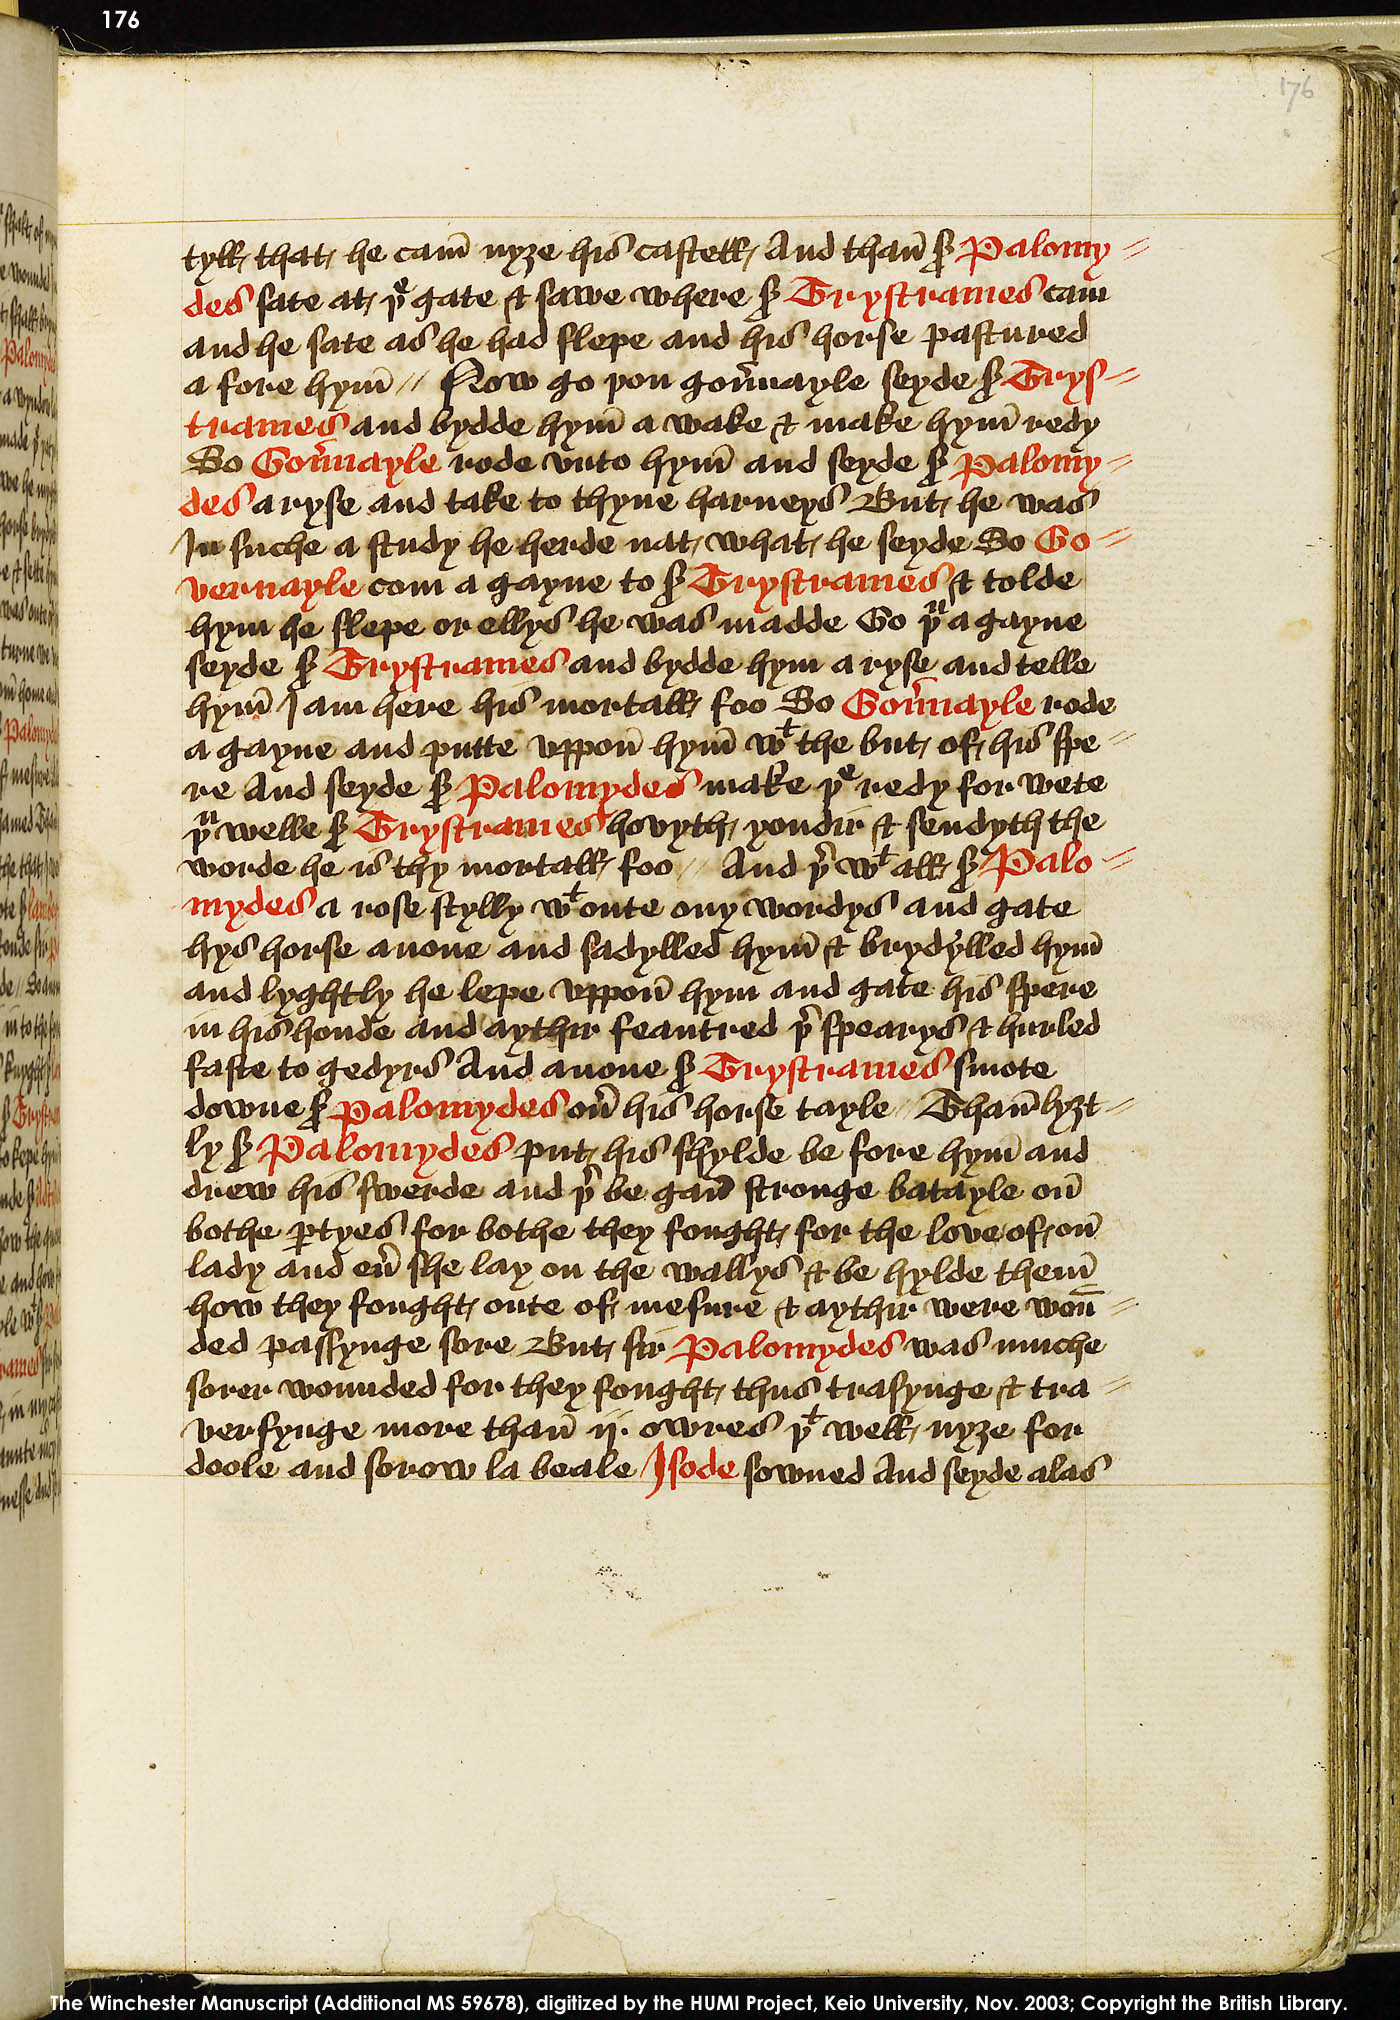 176
176
tyll that he cam̄ nyȝe his castell And than̄ sr̄ Palomy//
des sate at þe gate & sawe where sr̄ Trystrames cam
and he sate as he had slepe and his horse pastured
a fore hym̄ // Now go þou gou̾nayle seyde sr̄ Trys//
trames and bydde hym̄ a wake & make hym̄ redy
So Gou̾nayle rode vnto hym̄ and seyde sr̄ Palomy//
des a ryse and take to thyne harneys But he was
In suche a study he herde nat what he seyde So Go//
vernayle com a gayne to sr̄ Trystrames & tolde
hym he slepe or ellys he was madde Go þu a gayne
seyde sr̄ Trystrames and bydde hym a ryse and telle
hym̄ I am here his mortall foo So Gou̾nayle rode
a gayne and putte vppon̄ hym̄ wt the but of his spe//
re And seyde sr̄ Palomydes make þe redy for wete
þu welle sr̄ Trystrames hovyth yondir & sendyth the
worde he is thy mortall foo // And þr̾ wt all sr̄ Palo//
mydes a rose stylly wt oute ony wordys and gate
hys horse anone and sadylled hym̄ & brydylled hym̄
and lyghtly he lepe vppon̄ hym and gate his spere
in his honde and aythir feautred þr̾ spearys & hurled
faste to gedyrs And anone sr̄ Trystrames smote
downe sr̄ Palomydes ou̾ his horse tayle // Than̄ lyȝt//
ly sr̄ Palomydes put his shylde be fore hym̄ and
drew his swerde and þr̾ be gan̄ stronge batayle on̄
bothe ꝑtyes for bothe they fought for the love of on̄
lady and eu̾ she lay on the wallys & be hylde them̄
how they fought oute of mesure & aythir were woū//
ded passynge sore But sir Palomydes was muche
sorer wounded for they fought thus trasynge & tra//
versynge more than̄ ij. owres þt well nyȝe for
doole and sorow la beale Isode sowned And seyde alas
The Winchester Manuscript (Additional MS 59678), digitized by the HUMI Project, Keio University, Nov. 2003; Copyright the British Library.